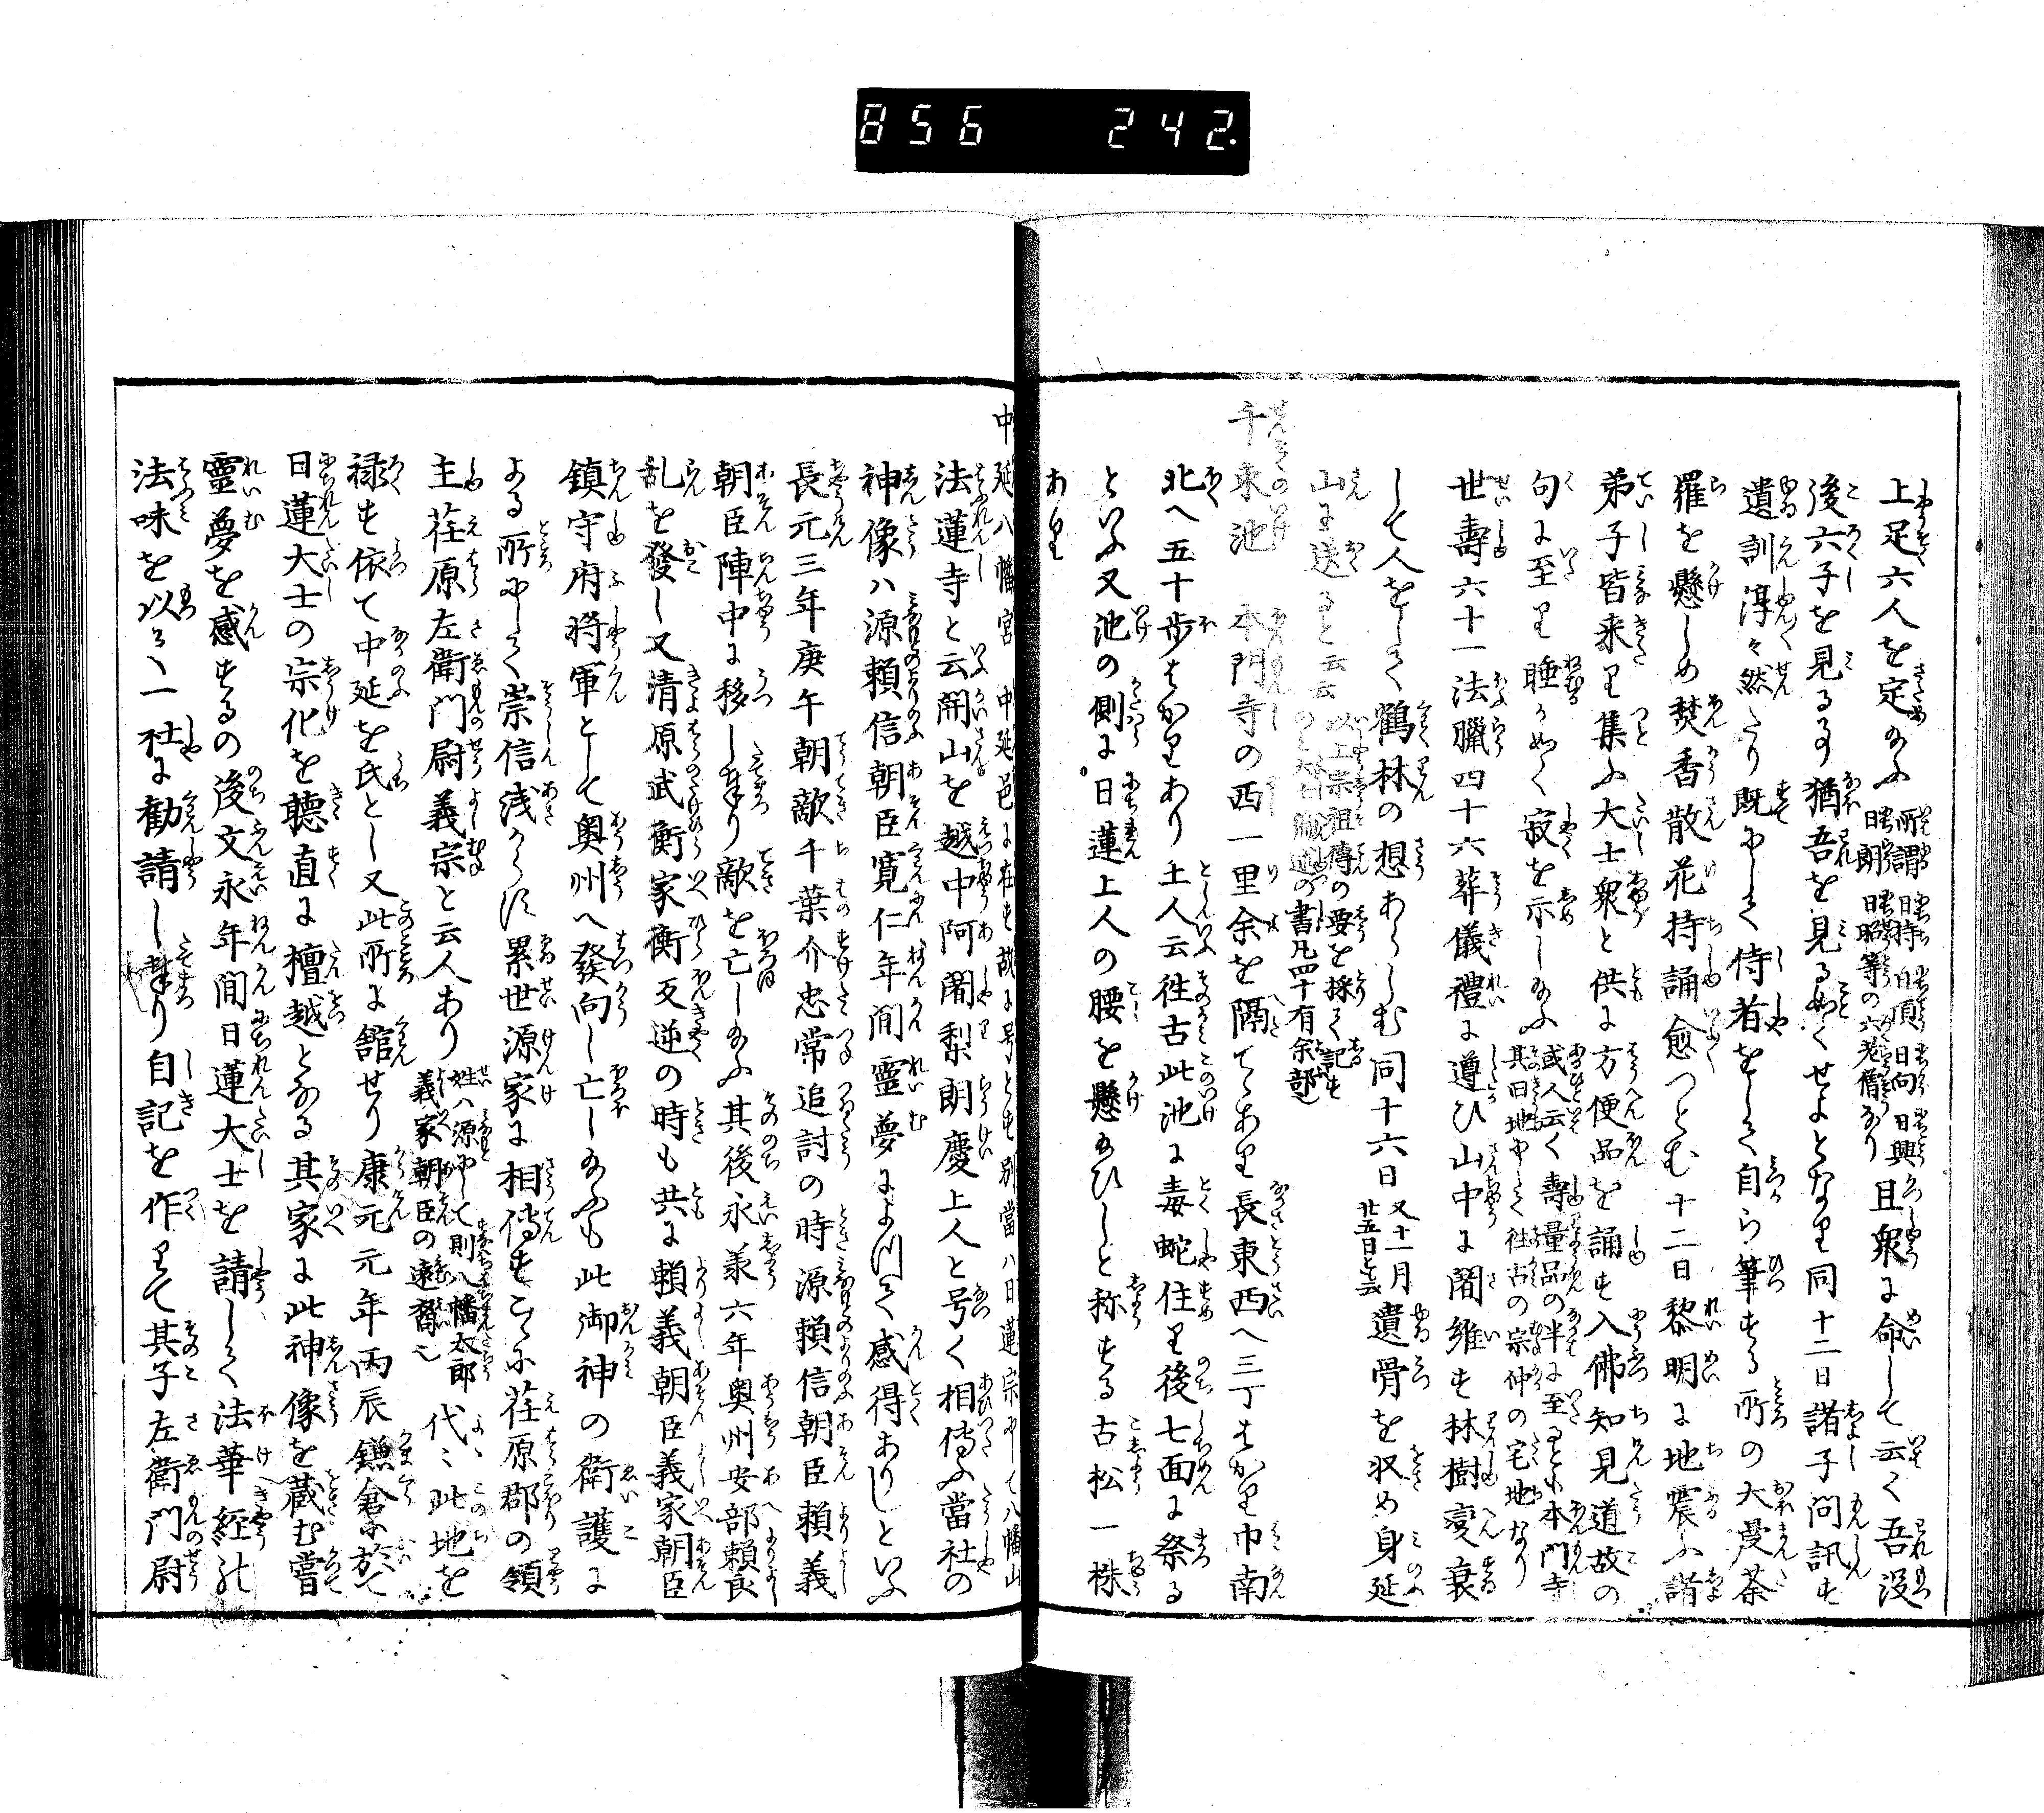 856 242.
上足六人を定めふ 所謂日持日頂日向日興日朗日昭等の六老僧なり 且衆に命して云く吾没
後六子を見るの猶吾を見る如くせよとなり同十二日諸子問訊す
遺訓淳々然たり既にして侍者をして自ら筆する所の大曼荼
羅を懸しめ焚香散花持誦愈つとむ十二日黎明に地震ふ諸
弟子皆来り集ふ大士衆と供に方便品を誦す入佛知見道故の
句に至り睡る如く寂を示し給ふ 或人云く壽量品の半に至るとも本門寺其旧地にして往古の宗仲の宅地なり
世壽六十一法臘四十六葬儀禮に遵ひ山中に闍維す林樹変衰
して人をして鶴林の想あらしむ同十六日 又十一月廿五日と云 遺骨を収め身延
山に送ると云云 以上宗祖傳の要を採て記すの書凡四十有余部
千束池 本門寺の西一里余を隔てあり長東西へ三丁はかり巾南
北へ五十歩はかりあり土人云往古此池に毒蛇住り後七面に祭る
といふ又池の側に日蓮上人の腰を懸給ひしと称する古松一株
あり
中延八幡宮 中延邑に在す故に号とす別當ハ日蓮宗にして八幡山
法蓮寺と云開山を越中阿闍梨朗慶上人と号く相傳ふ當社の
神像ハ源頼信朝臣寛仁年間靈夢によつて感得ありしといふ
長元三年庚午朝敵千葉介忠常追討の時源頼信朝臣頼義
朝臣陣中に移し奉り敵を亡し給ふ其後永承六年奥州安部頼良
乱を發し又清原武衡家衡反逆の時も共に頼義朝臣義家朝臣
鎮守府将軍として奥州へ發向し亡し給ふも此御神の衛護に
よる所にして崇信浅からす累世源家に相傳すこゝに荏原郡の領
主荏原左衛門尉義宗と云人あり 姓ハ源にして則八幡太郎義家朝臣の遠裔也 代〻此地を
禄す依て中延を氏とし又此所に舘せり康元元年丙辰鎌倉に於て
日蓮大士の宗化を聴直に檀越となる其家に此神像を蔵む嘗
靈夢を感するの後文永年間日蓮大士を請して法華経の
法味を以て一社に勧請し奉り自記を作りて其子左衛門尉